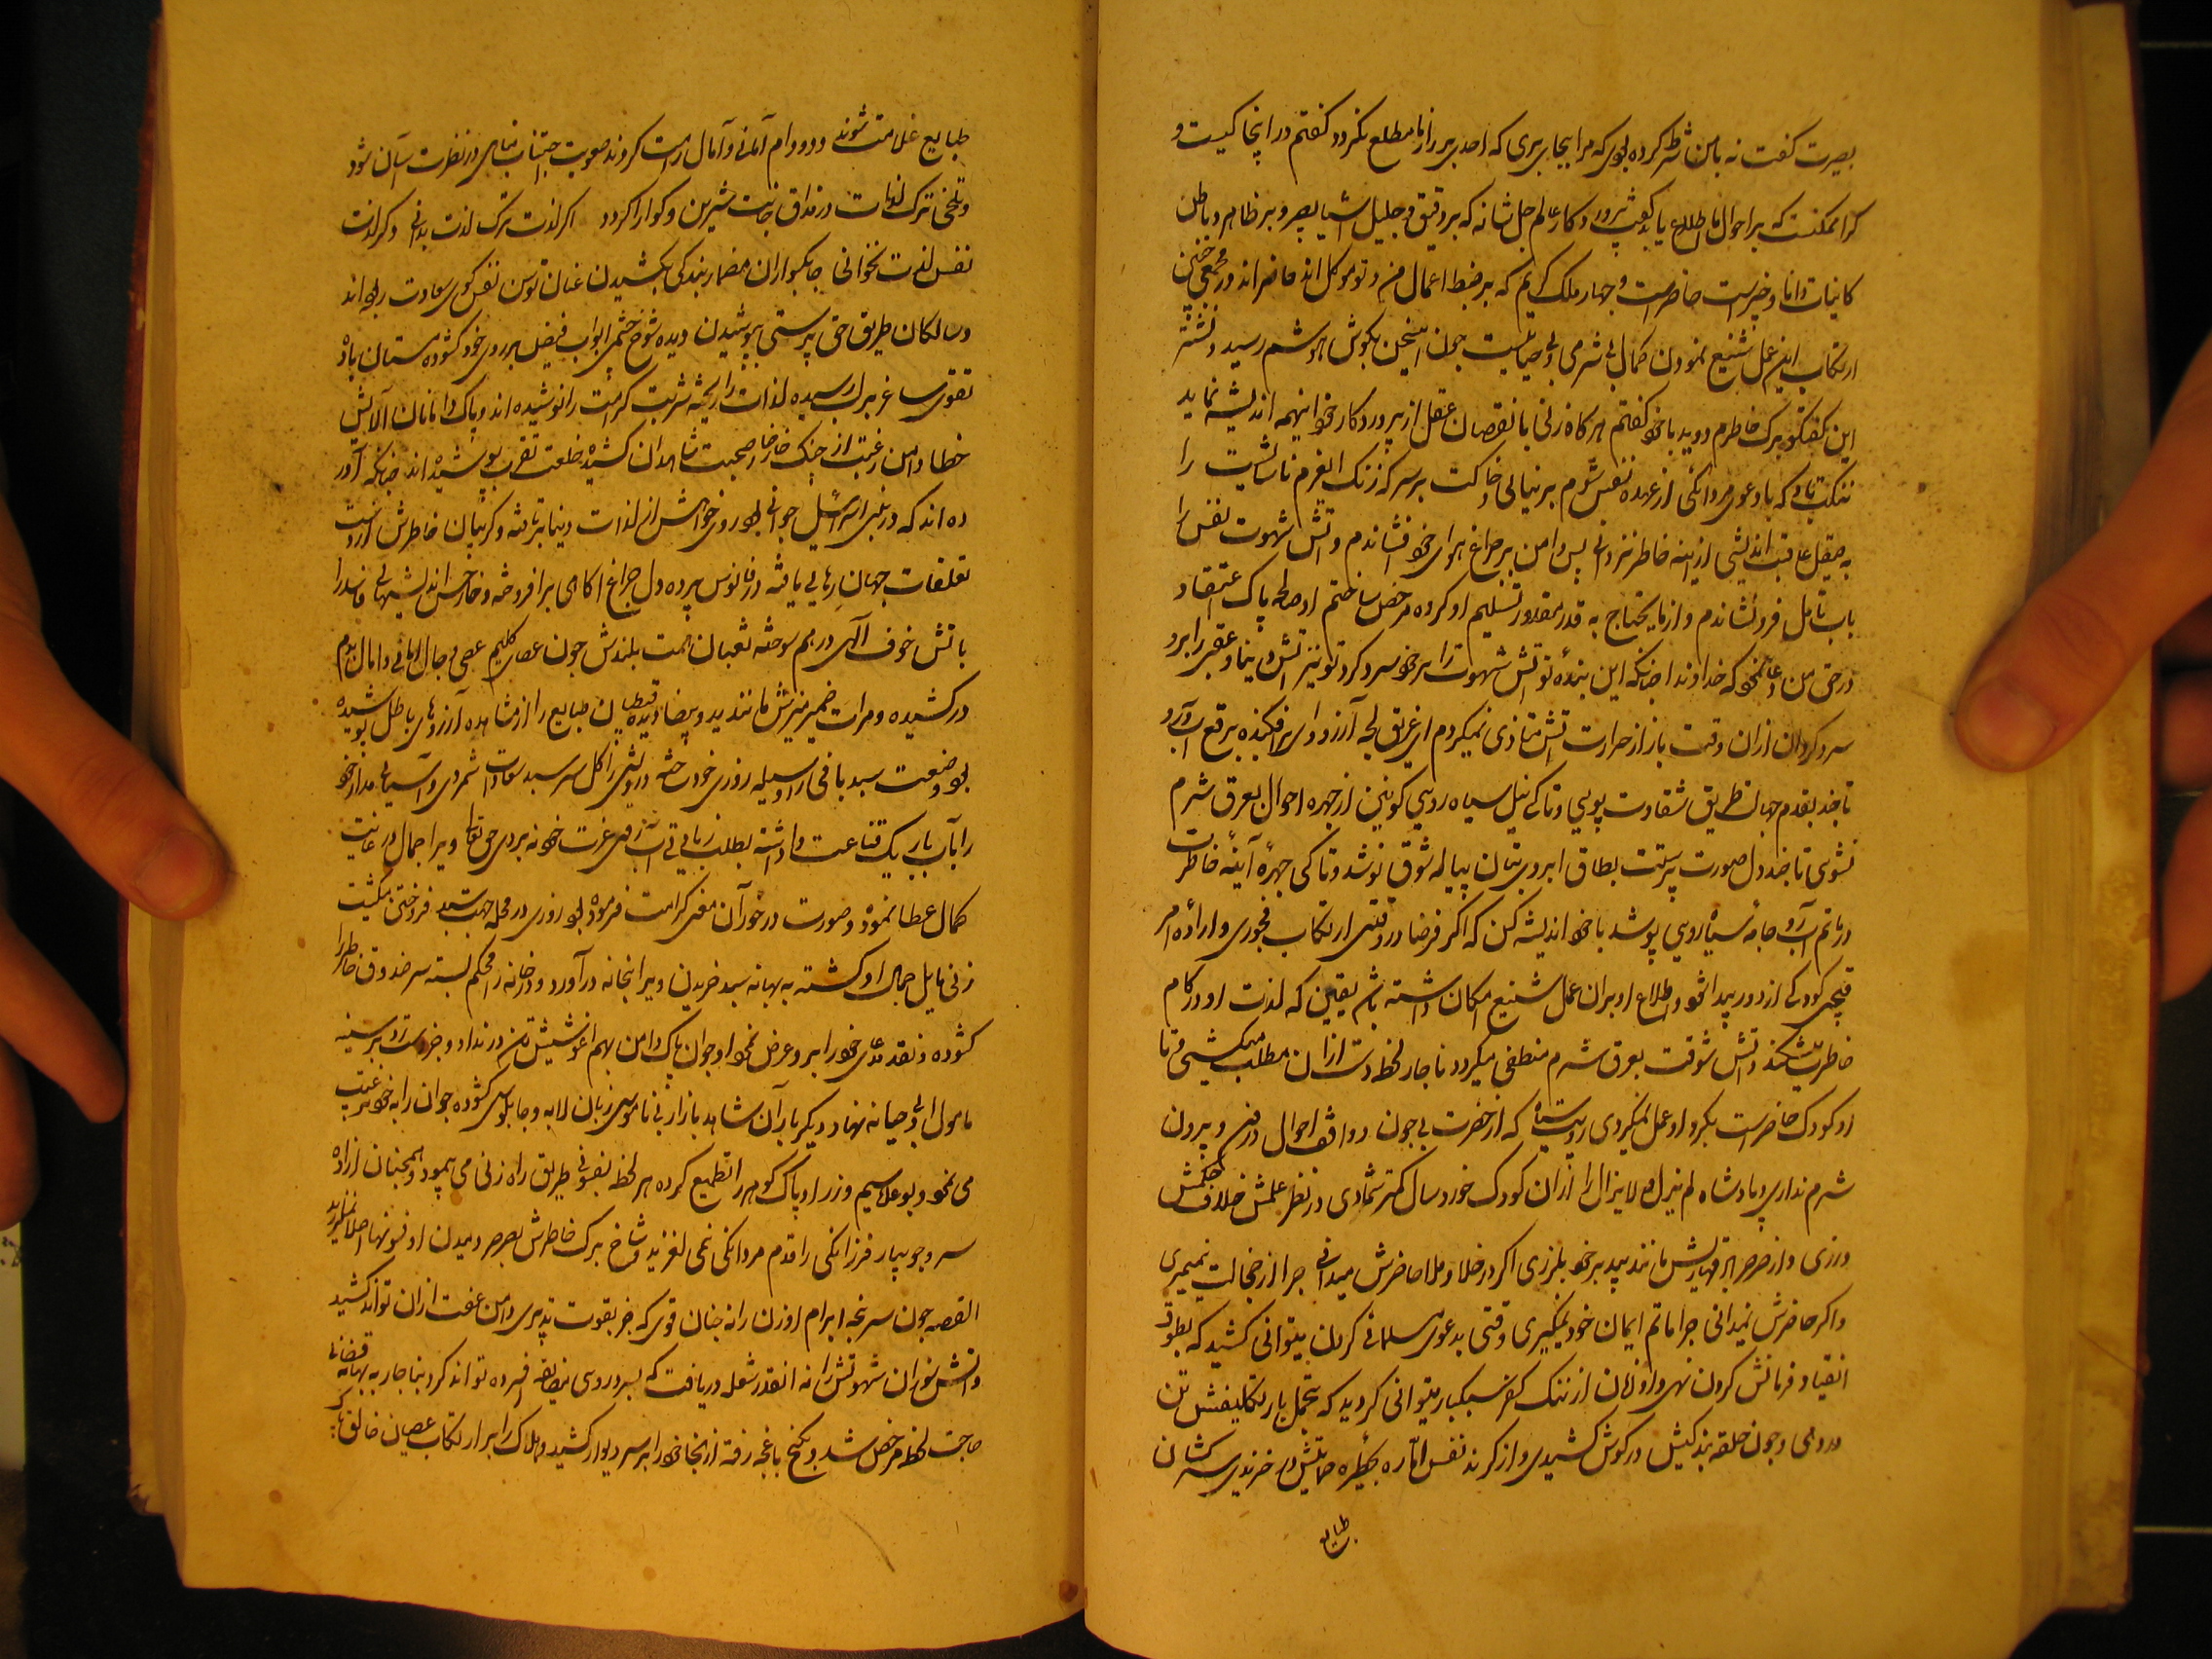 بصیرت کفت نه بامن شرط کرده بودی که مرا بیجای بری که احدی بر راز ما مطلع نکردد کفتم در اینجا کیست و
کرا ممکنست که بر احوال ما اطلاع یابد کفت پروردکار عالم جل شانه که بر دقیق و جلیل اشیا بصیر و بر ظاهر و باطن
کاینات دانا و خبیر است حاضر است و چهار ملک کریم که بر ضبط اعمال من و تو موکل اند حاضر اند در مجمع چنین
ارتکاب این عمل شنیع نمودن کمال بی شرمی و بی حیائیست چون این سخن بکوش هوشم رسید و نشتر
این کفتکو برک خاطرم دوید با خود کفتم هرکاه زنی با نقصان عقل از پروردکار خود اینهمه اندیشه نماید
ننکت باد که با دعوی مردانکی از عهده نفس شوم بر نیائی و خاکت بر سر که زنک این غم ناشایست را
به صیقل عاقبت اندیشی از آینه خاطر نزدائی پس دامن بر چراغ هوای خود فشاندم و آتش شهوت نفس را
باب تامل فرو نشاندم و از مایحتاج به قدر مقدور تسلیم او کرده مرخص ساختم او صالحه پاک اعتقاد
در حق من دعا نمود که خداوندا چنانکه این بنده تو آتش شهوت را بر خود سرد کرد تو نیز آتش دنیا و عقبی را برو
سرد کردان ازان وقت باز از حرارت آتش متاذی نمیکردم ای غریق لجه آرزو وای بر افکنده برقع آبرو
تا چند بقدم جهالت طریق شقاوت پویی و تا کی نیل سیاه رویی کونین از چهره احوال بعرق شرم
نشوی تا چند دل صورت پرستت بطاق ابروی بتان پیاله شوق نوشد و تا کی چهره آینه خاطرت
در ماتم آبرو جامه سیاه رویی پوشد با خود اندیشه کن که اکر فرضا در وقتی ارتکاب فجوری و اراده امر
قبیحی کودکی از دور پیدا شود و اطلاع او بران عمل شنیع امکان داشته باشد یقین که لذت او در کام
خاطرت میشکند و آتش شوقت بعرق شرم منطفی میکردد ناچار لحظه دست ازان مطلب میکشی و تا
او کودک حاضر است بکرد او عمل نمیکردی رویت سیاه که از حضرت بی چون و واقف احوال درون و بیرون
شرم نداری و پادشاه لم یزل و لا یزال را ازان کودک خورد سال کمتر شماری در نظر علمش خلاف حکمش
ورزی و از صرصر قهاریش مانند بید بر خود نلرزی اکر در خلا و ملا حاضرش میدانی چرا از خجالت نمیمیری
و اکر حاضرش نمیدانی چرا ماتم ایمان خود نمیکیری وقتی بدعوی مسلمانی کردن میتوانی کشید که بطوق
انقیاد فرمانش کردن نهی و از ننک کفر سبکبار میتوانی کردید که بتحمل بار تکالیفش تن
در دهی و چون حلقه بندکیش در کوش کشیدی و از کزند نفس اماره بحظیره حمایتش در خزیدی سرکشان
طبایع
طبایع غلامت شوند و دد و دام امانی و آمال رامت کردند صعوبت اجتناب مناهی در نظرت آسان شود
و تلخی ترک لذات در مذاق جانت شیرین و کوارا کردد اکر لذت ترک لذت بدانی دکر لذت
نفس لذت نخوانی چابکسواران مضمار بندکی بکشیدن عنان توسن نفس کوی سعادت ربوده اند
و سالکان طریق حق پرستی بپوشیدن دیده شوخ چشمی ابواب فیض بر روی خود کشوده مستان باده
تقوی ساغر بر لب رسیده لذات را ریخته شربت کرامت را نوشیده اند و پاک دامانان آلایش
خطا دامن رغبت از چنک خار خار صحبت شاهدان کشیده خلعت تقرب پوشیده اند چنانکه آور
ده اند که در بنی اسرائیل جوانی بود روی خواهش از لذات دنیا بر تافته و کریبان خاطرش از دست
تعلقات جهان رهایی یافته در فانوس پرده دل چراغ آکاهی بر افروخته و خار خس اندیشهای فاسد را
باتش خوف الهی در هم سوخته ثعبان همت بلندش چون عصای کلیم عصی و حبال امانی و امال بدم
در کشیده و مرات ضمیر منیرش مانند ید بیضا دیده قبطیان طبایع را از مشاهده آرزوهای باطل پوشیده
بود صنعت سبد بافی را وسیله روزی خود ساخته و درویشی را کل سر سبد سعادت شمردی و آسیای مدار خود
را باب باریک قناعت داشته بطلب زیادتی آب روی عزت خود نبردی حق تعالی ویرا جمال در غایت
کمال عطا نموده و صورت در خور آن معنی کرامت فرموده بود روزی در محله جهت سبد فروختن میکشت
زنی مایل جمال او کشته به بهانه سبد خریدن ویرا بخانه در آورد و در خانه را محکم بسته سر صندوق خاطر را
کشوده و نقد مدعای خود را برو عرض نمود او جوان پاک دامن بهم آغوشیش تن در نداد و جز دست رد بر سینه
مامول او بی حیا نه نهاد دیکر بار آن شاهد بازار بی ناموسی زبان لابه و چابلوسی کشوده جوان را به خود ترغیب
می نمود و بوعدهای سیم و زر او پاک کوهر را تطمیع کرده هر لحظه بفسونی طریق راه زنی می پیمود و همچنان ازاده
سرو جویبار فرزانکی را قدم مردانکی نمی لغزید و شاخ برک خاطرش بصرصر دمیدن او فسونها اصلا نمیلرزید
القصه چون سر پنجه ابرام او زن را نه چنان قوی که جز بقوت تدبیری دامن عفت ازان تواند کشید
و آتش سوزان شهوتش را نه انقدر شعله دریافت که بسردروسی مضایقه افسرده تواند کرد بناچار به بهانه قضای
حاجت لحظه مرخص شد و بکنج باغچه رفته از آنجا خود را بر سر دیوار کشید و هلاک را بر ارتکاب عصیان خالق پاک